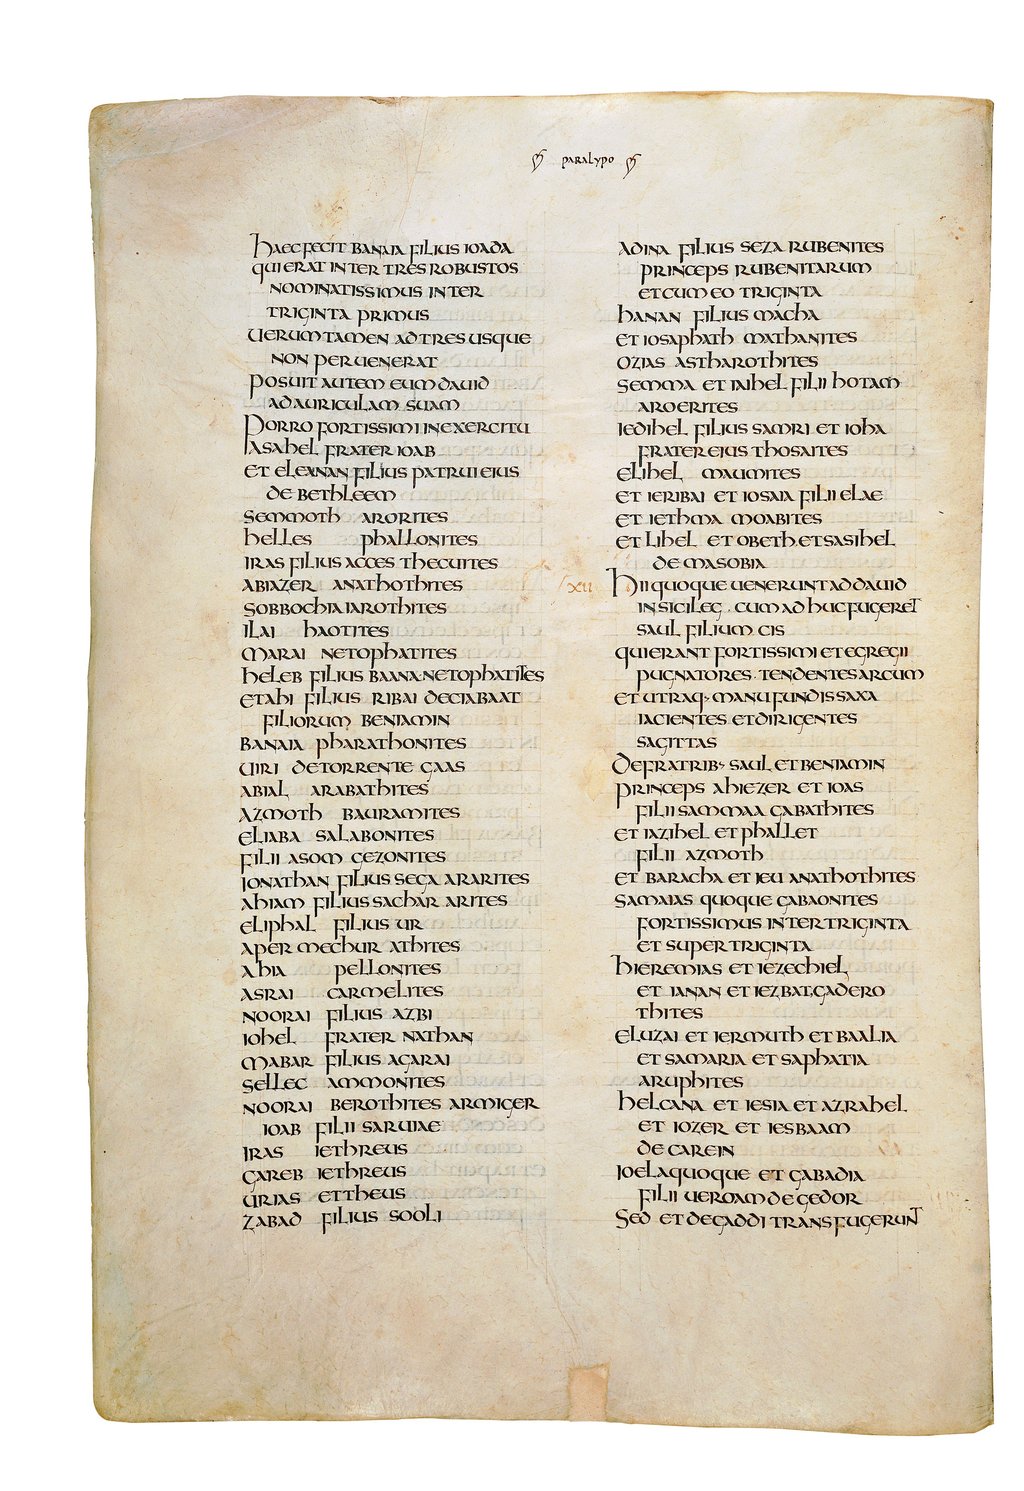 paralypo
haec fecit banaia filius ioada
qui erat inter tres robustos
nominatissimus inter
triginta primus
uerum tamen ad tres usque
non peruenerat
posuit autem eum dauid
ad auriculam suam
porro fortissimi in exercitu
asahel frater ioab
et eleanan filius patrui eius
de bethleem
semmoth arorites
helles phallonites
iras filius acces thecuites
abiazer anathothites
sobbochia iarothites
ilai haotites
marai netophatites
heleb filius baana netophatites
etahi filius ribai deciabaat
filiorum beniamin
banaia pharathonites
uiri de torrente gaas
abial arabathites
azmoth bauramites
eliaba salabonites
filii asom gezonites
ionathan filius sega ararites
ahiam filius sachar arites
eliphal filius ur
aper mechur athites
ahia pellonites
asrai carmelites
noorai filius azbi
iohel frater nathan
mabar filius agarai
sellec ammonites
noorai berothites armiger
ioab filii saruiae
iras iethreus
gareb iethreus
urias ettheus
zabad filius sooli
adina filius seza rubenites
princeps rubenitarum
et cum eo triginta
hanan filius macha
et iosaphath mathanites
ozias astharothites
semma et iaihel filii hotam
aroerites
iedihel filius samri et ioha
frater eius thosaites
elihel maumites
et ieribai et iosaia filii elae
et iethma moabites
et lihel et obeth et sasihel
de masobia
xii hii quoque uenerunt ad dauid
in siceleg cum adhuc fugeret
saul filium cis
qui erant fortissimi et egregii
pugnatores tendentes arcum
et utraq· manu fundis saxa
iacientes et dirigentes
sagittas
de fratrib· saul et beniamin
princeps ahiezer et ioas
filii sammaa gabathites
et iazihel et phallet
filii azmoth
et baracha et ieu anathothites
samaias quoque gabaonites
fortissimus inter triginta
et super triginta
hieremias et iezechiel
et ianan et iezbat gadero
thites
eluzai et iermuth et baalia
et samaria et saphatia
aruphites
helcana et iesia et azrahel
et iozer et iesbaam
de carein
ioela quoque et gabadia
filii ueroam de gedor
sed et de gaddi transfugerunt